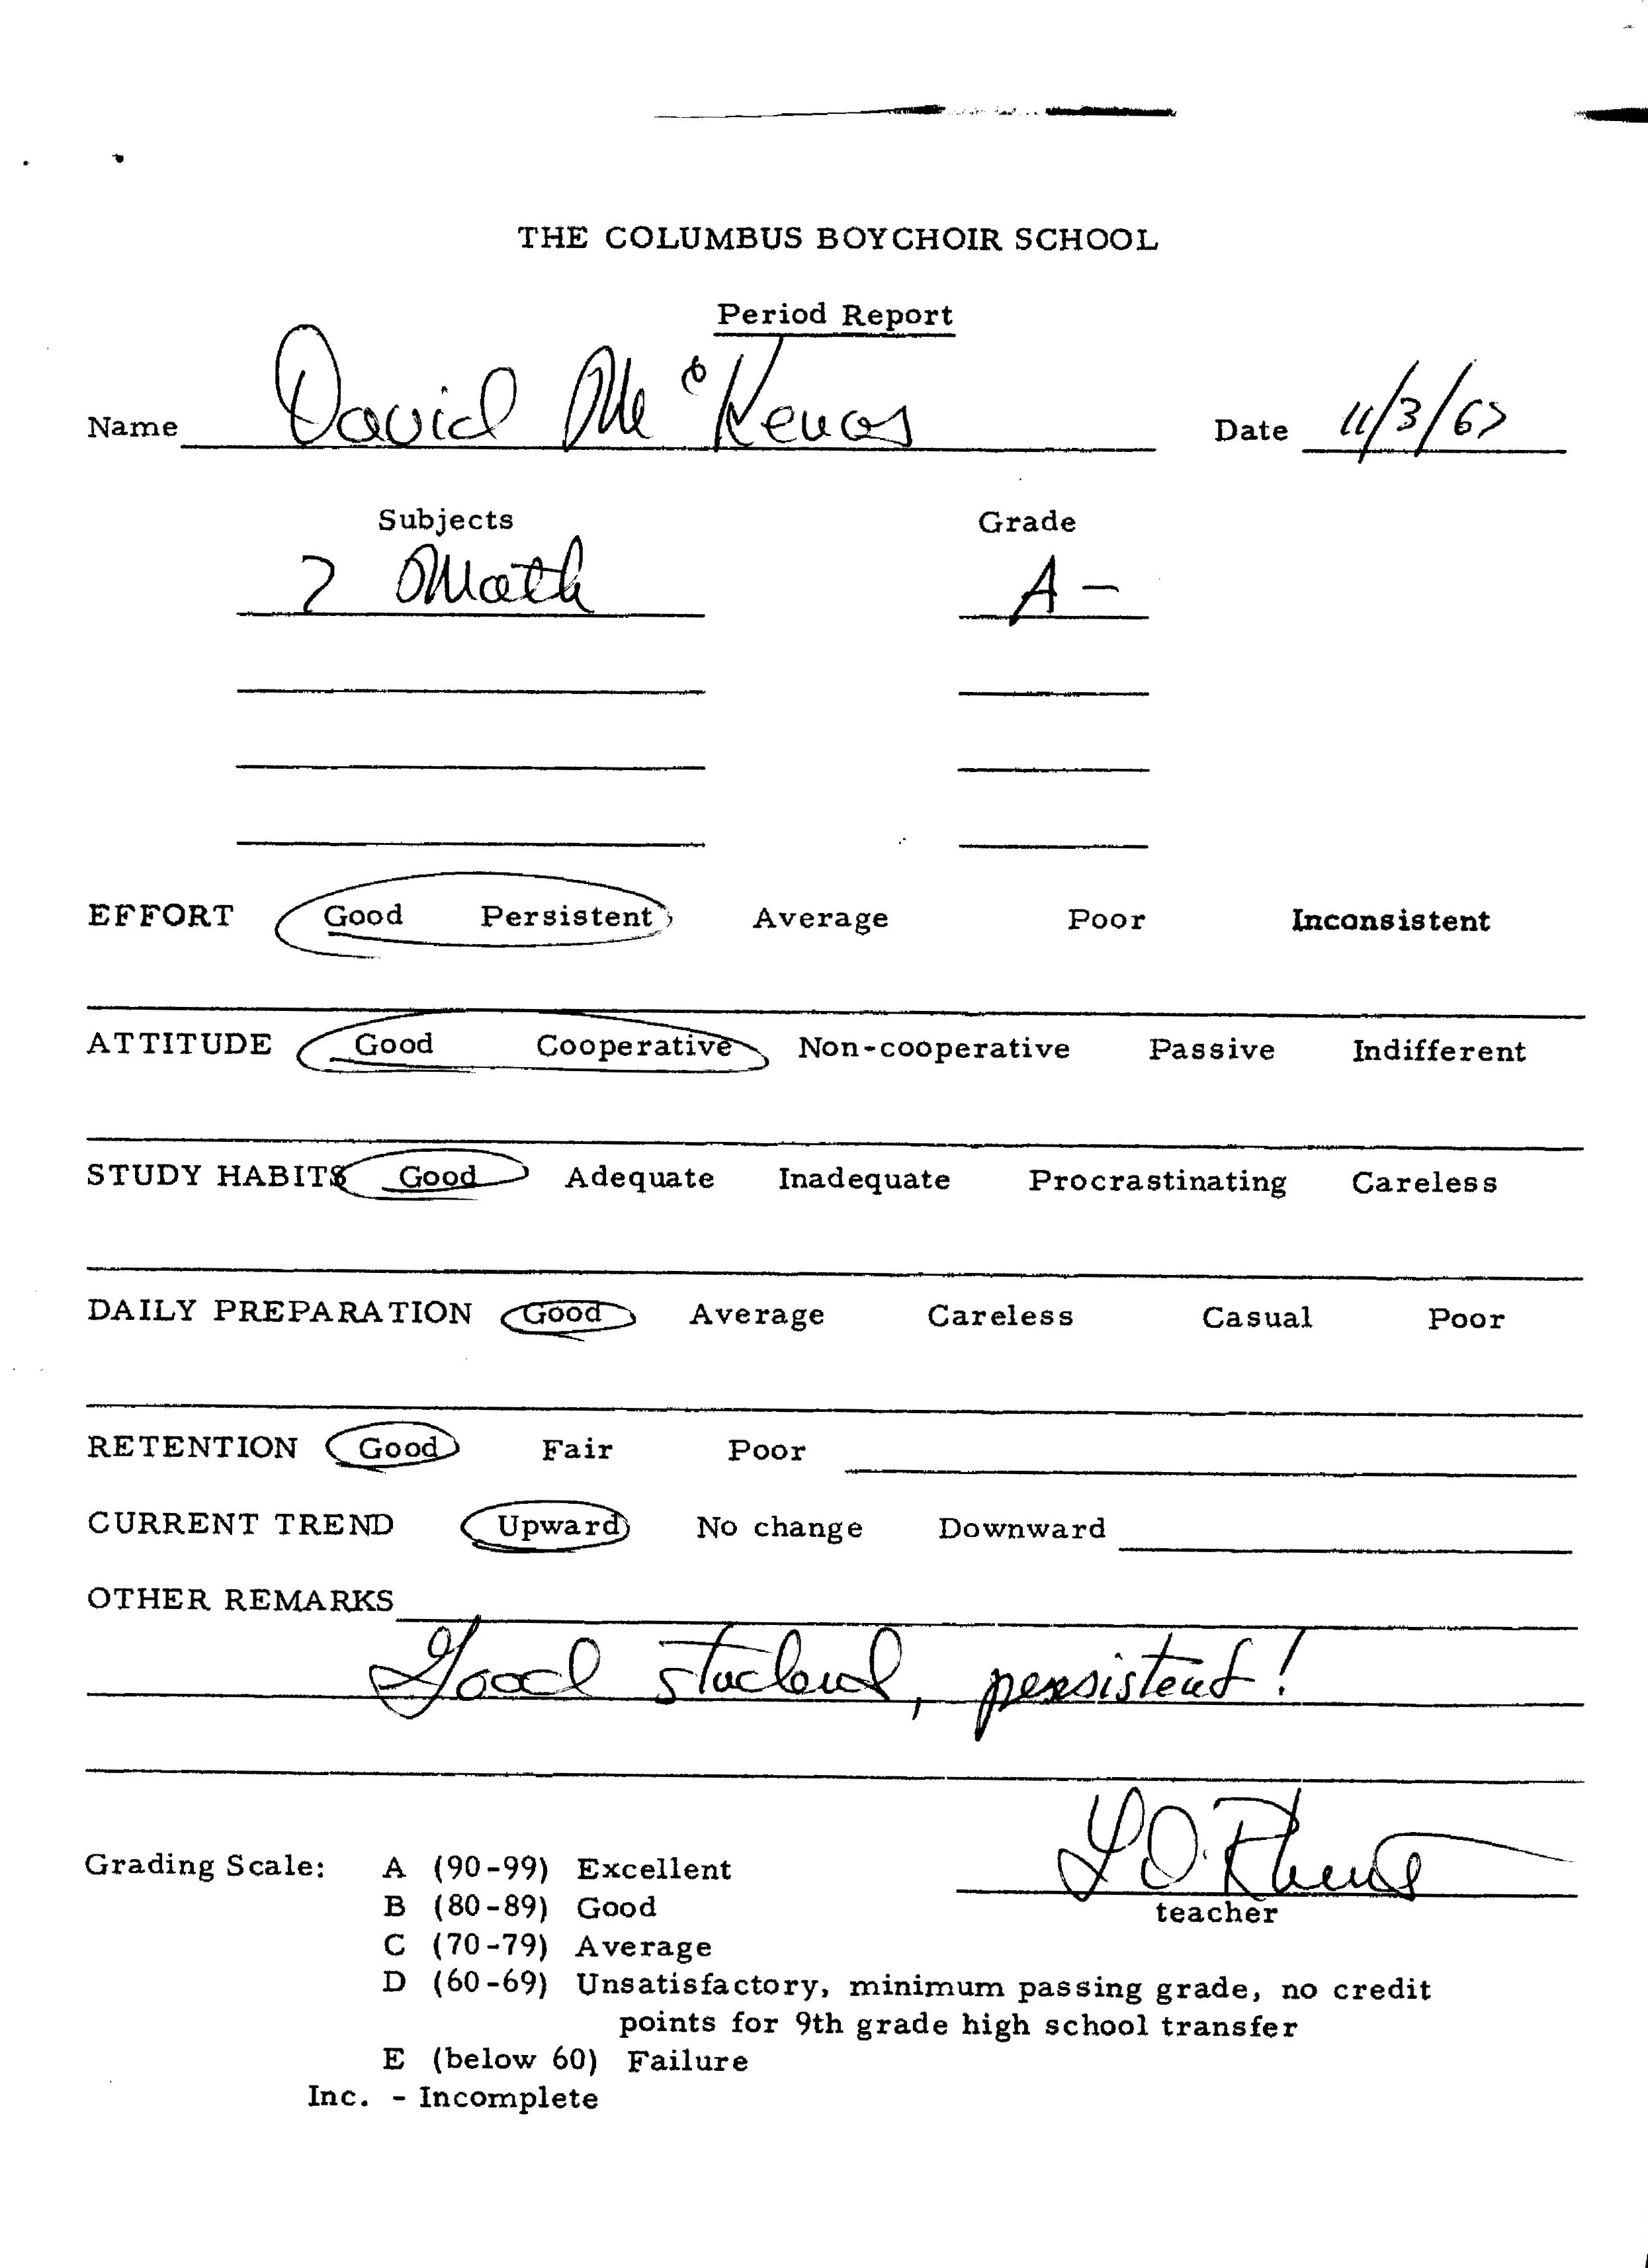 THE COLUMBUS BOYCHOIR SCHOOL
Period Report
Name David Mc Date 11/3/67
Subjects Grade
7 Math A-
EFFORT Good Persistent Average Poor Inconsistent
ATTITUDE Good Cooperative Non-cooperative Passive Indifferent
STUDY HABITS Good Adequate Inadequate Procrastinating Careless
DAILY PREPARATION Good Average Careless Casual Poor
RETENTION Good Fair Poor
CURRENT TREND Upward No change Downward
OTHER REMARKS
Good student, persistent!
teacher
Grading Scale: A (90-99) Excellent
B (80-89) Good
C (70-79) Average
D (60-69) Unsatisfactory, minimum passing grade, no credit
points for 9th grade high school transfer
E (below 60) Failure
Inc. - Incomplete